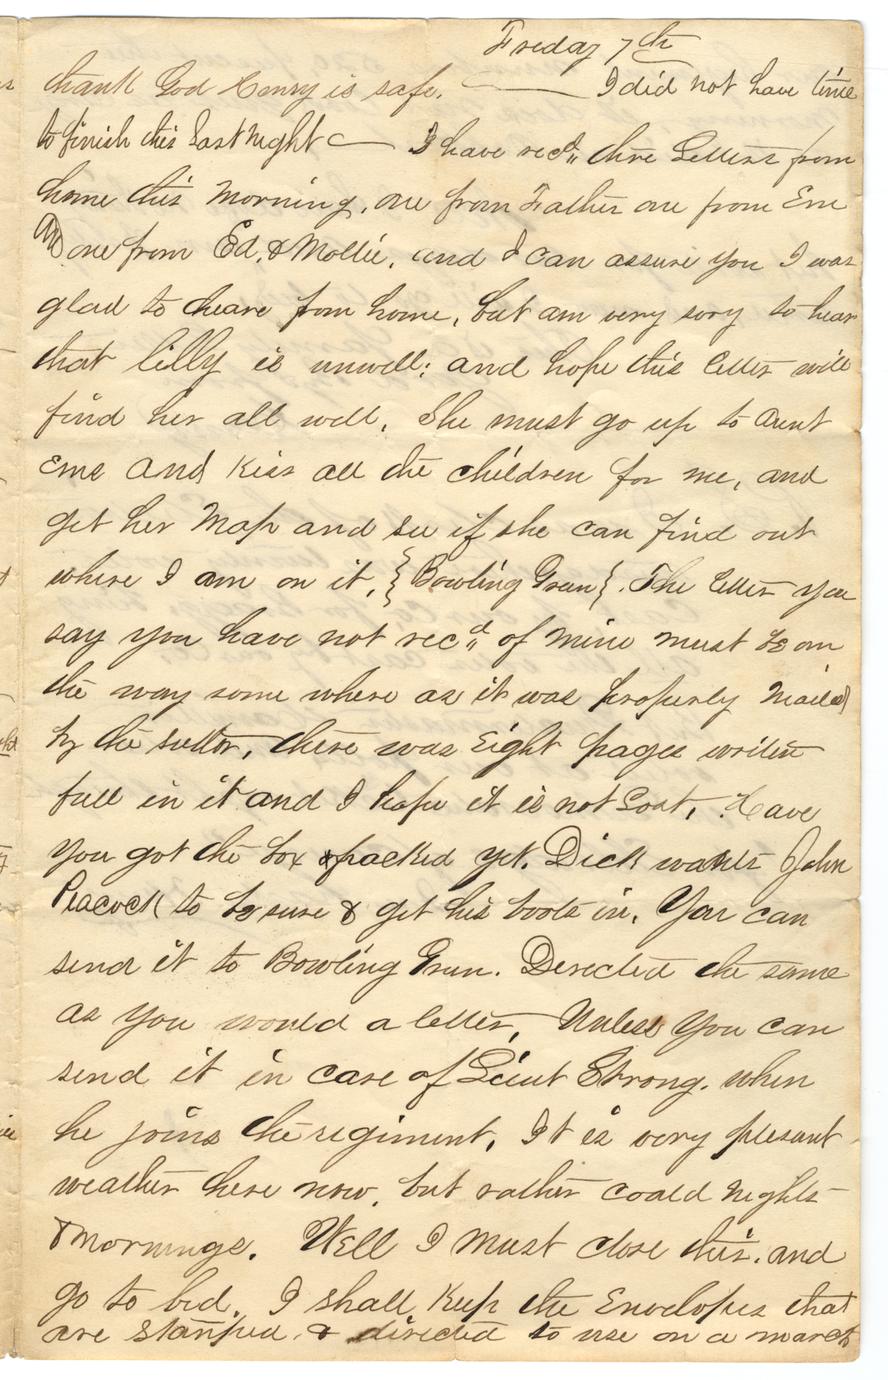 Friday 7th
thank God Henry is safe. — I did not have time
to finish this Last Night — I have recd, thre Letters from
home this Morning, one from Father one from Em
And one from Ed, & Mollie, and I can assure you I was
glad to heare from home, but am very sory to hear
that lilly is unwell; and hope this letter will
find her all well. She must go up to Aunt
Eme and Kiss all the children for me, and
get her Map and see if she can find out
where I am on it, { Bowling Green }. The letter you
say you have not recd of mine must be on
the way some where as it was properly Mailed
by the sutler, there was Eight pages writen
full in it and I hope it is not Lost, Have
you got the box packed yet. Dick wants John
Peacock to be sure & get his boots in. You can
send it to Bowling Green. Derected the same
as you would a letter, Unless You can
send it in care of Lieut Strong. when
he joins the regiment, It is very plesant
weather here now, but rather coald nights
& mornings. Well I must close this. and
go to bed. I shall Keep the Envelopes that
are stamped & directed to use on a march